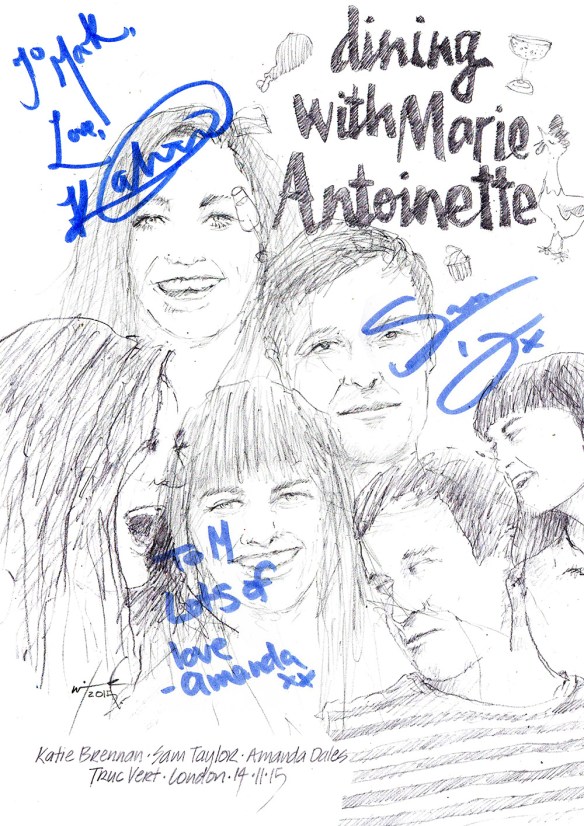 To Mark,
Love,
dining
with Marie
Antoinette
Sam
To M
Lots of
love
- amanda
xx
2015
Katie Brennan · Sam Taylor · Amanda Dales
Truc Vert · London · 14 · 11 · 15